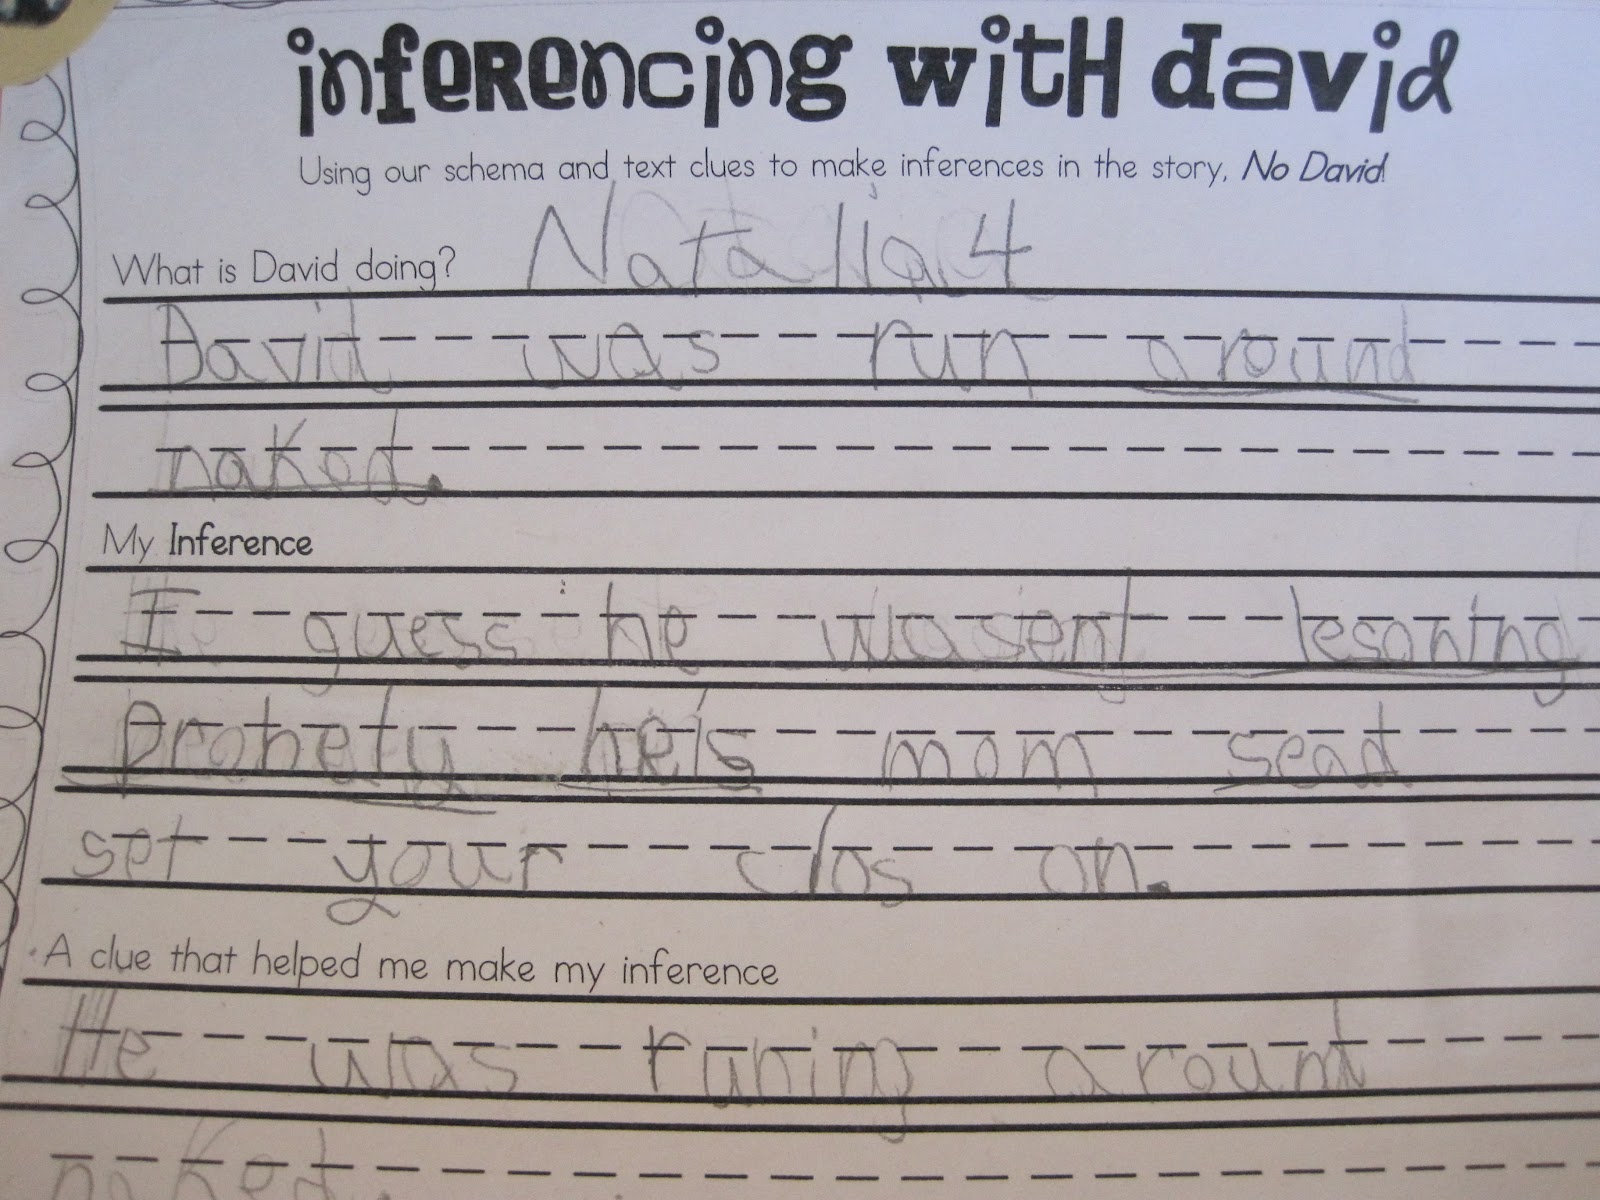 inferencing with david
Using our schema and text clues to make inferences in the story, No David!
What is David doing? Natalia.4
David was run around
naked.
My Inference
I guess he wasent lesoning
probely he's mom sead
set your clos on.
A clue that helped me make my inference
He was runing around
naked.